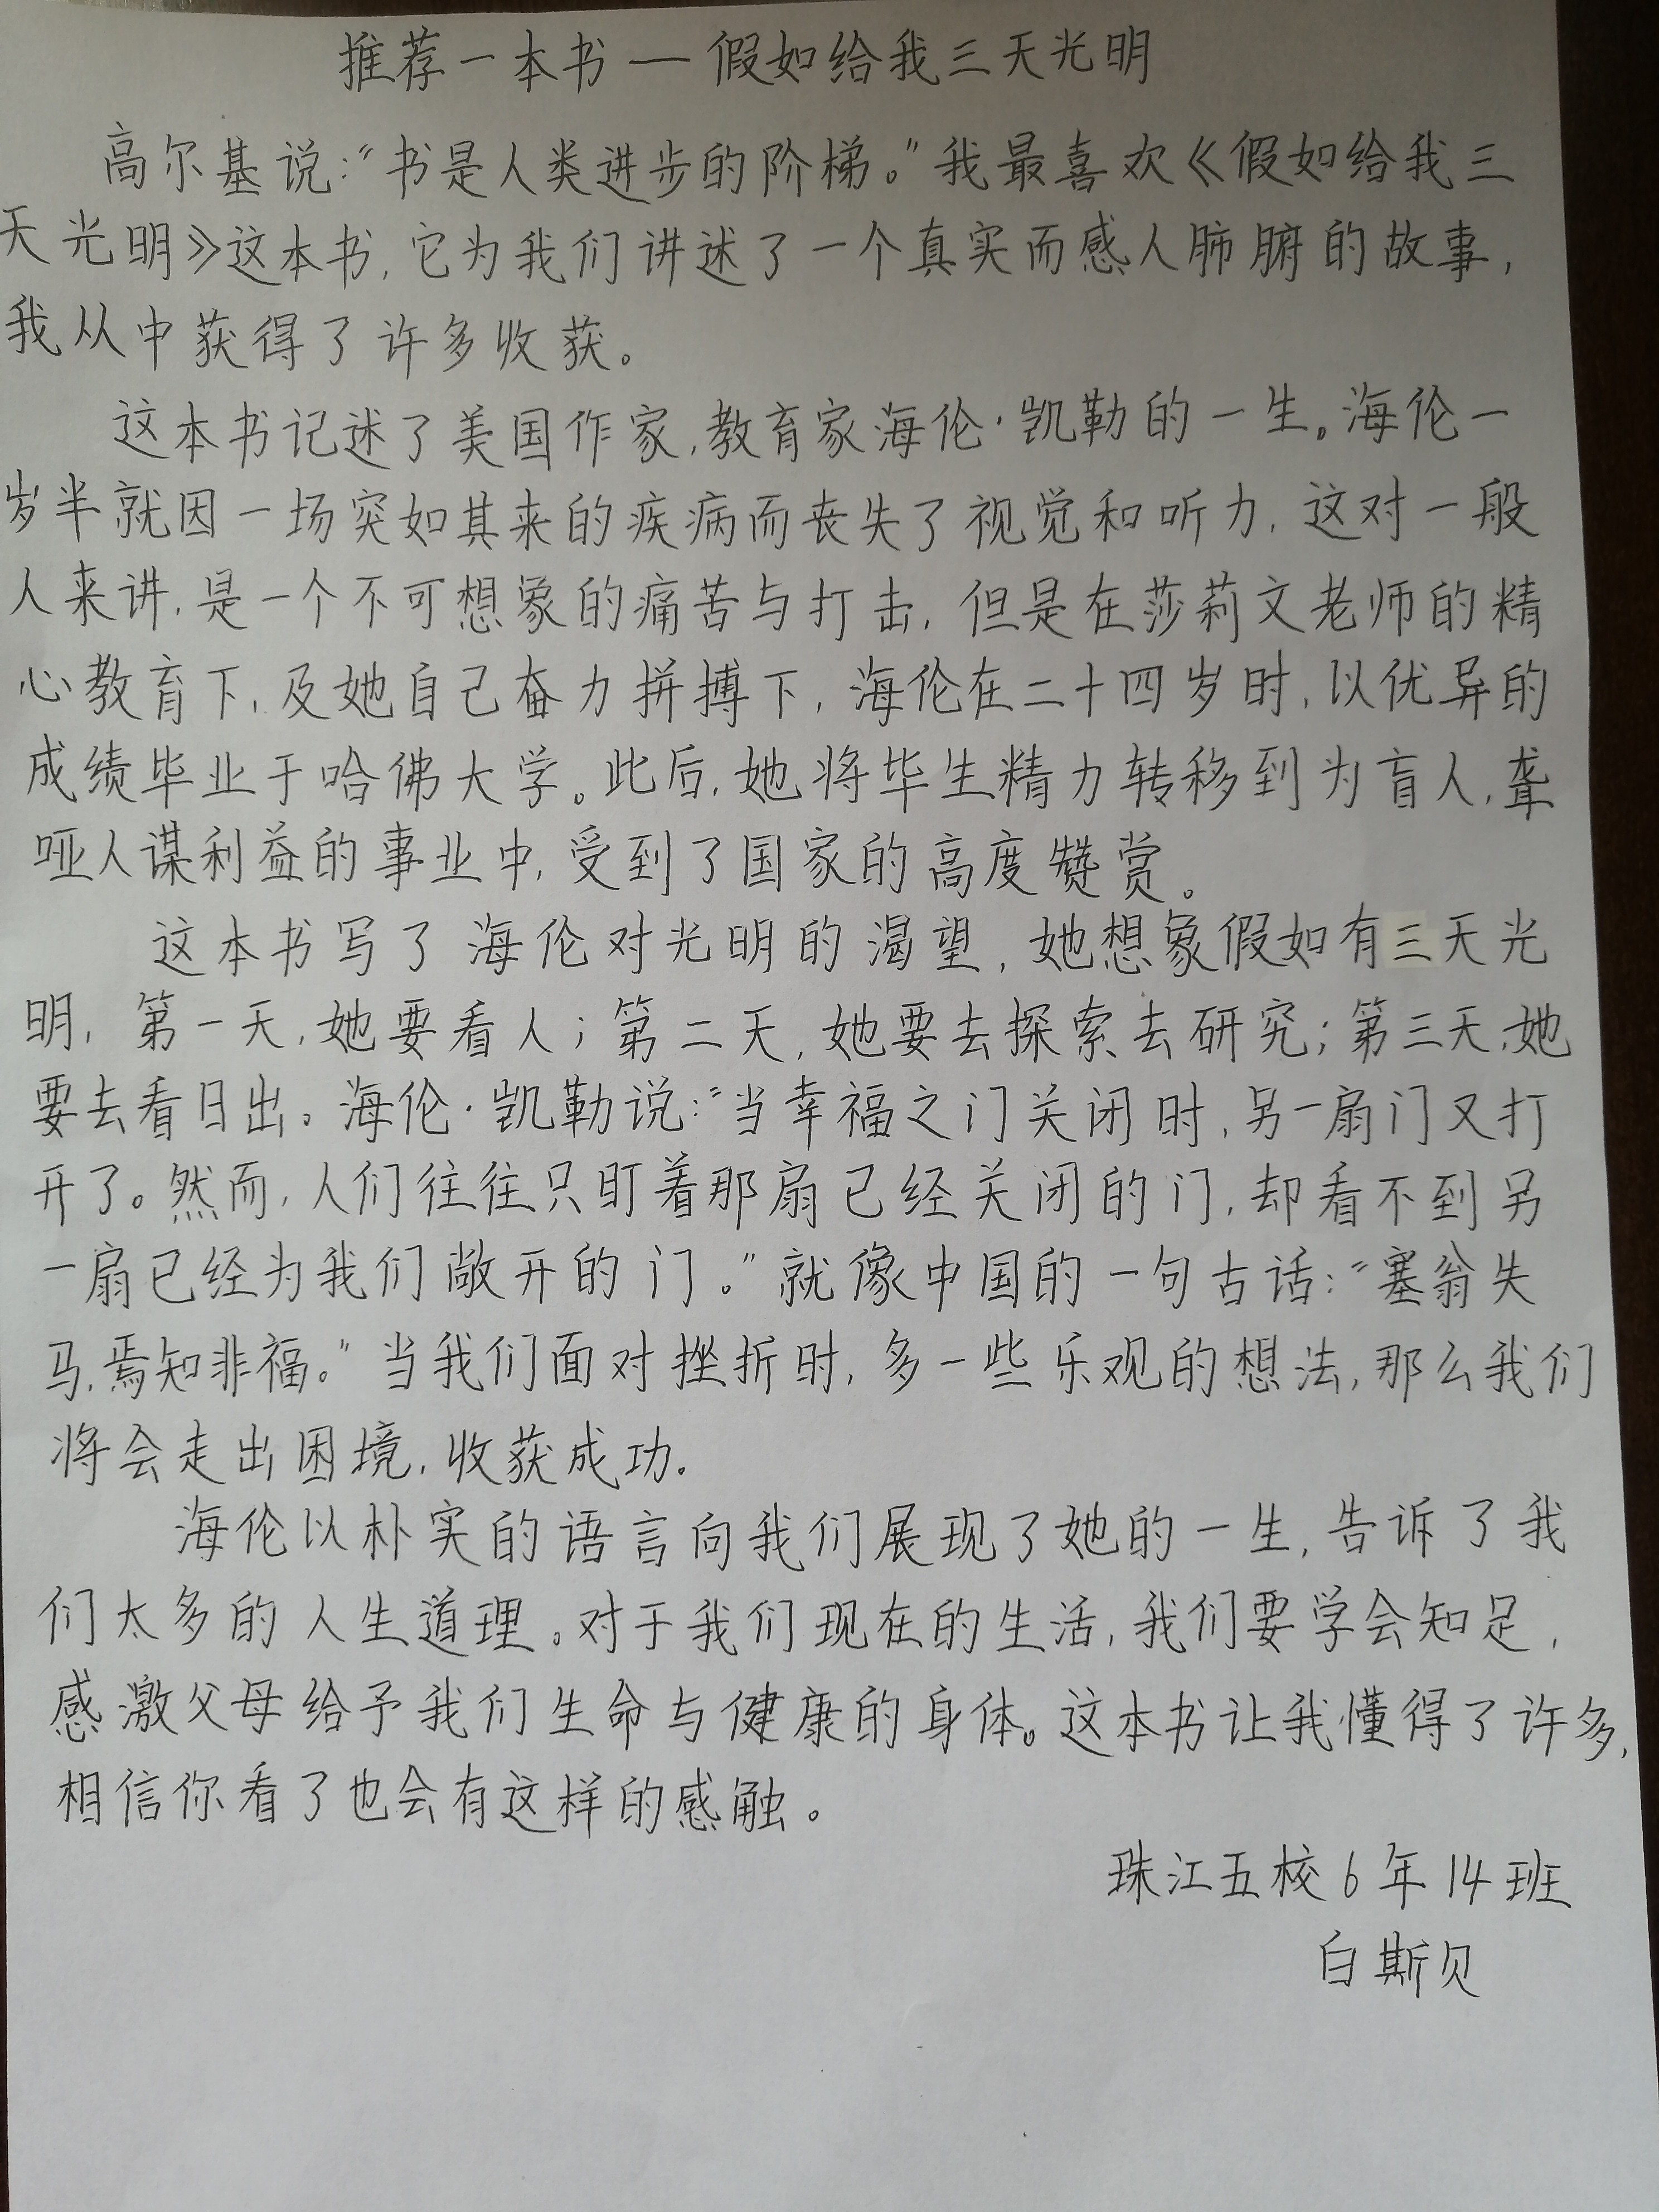 推荐一本书—假如给我三天光明
高尔基说:“书是人类进步的阶梯。”我最喜欢《假如给我三
天光明》这本书,它为我们讲述了一个真实而感人肺腑的故事,
我从中获得了许多收获。
这本书记述了美国作家,教育家海伦·凯勒的一生。海伦一
岁半就因一场突如其来的疾病而丧失了视觉和听力,这对一般
人来讲,是一个不可想象的痛苦与打击,但是在莎莉文老师的精
心教育下,及她自己奋力拼搏下,海伦在二十四岁时,以优异的
成绩毕业于哈佛大学。此后,她将毕生精力转移到为盲人,聋
哑人谋利益的事业中,受到了国家的高度赞赏。
这本书写了海伦对光明的渴望,她想象假如有三天光
明,第一天,她要看人;第二天,她要去探索去研究;第三天,她
要去看日出。海伦·凯勒说:“当幸福之门关闭时,另一扇门又打
开了。然而,人们往往只盯着那扇已经关闭的门,却看不到另
一扇已经为我们敞开的门。”就像中国的一句古话:“塞翁失
马,焉知非福。”当我们面对挫折时,多一些乐观的想法,那么我们
将会走出困境,收获成功.
海伦以朴实的语言向我们展现了她的一生,告诉了我
们太多的人生道理。对于我们现在的生活,我们要学会知足,
感激父母给予我们生命与健康的身体。这本书让我懂得了许多,
相信你看了也会有这样的感触。
珠江五校6年14班
白斯贝